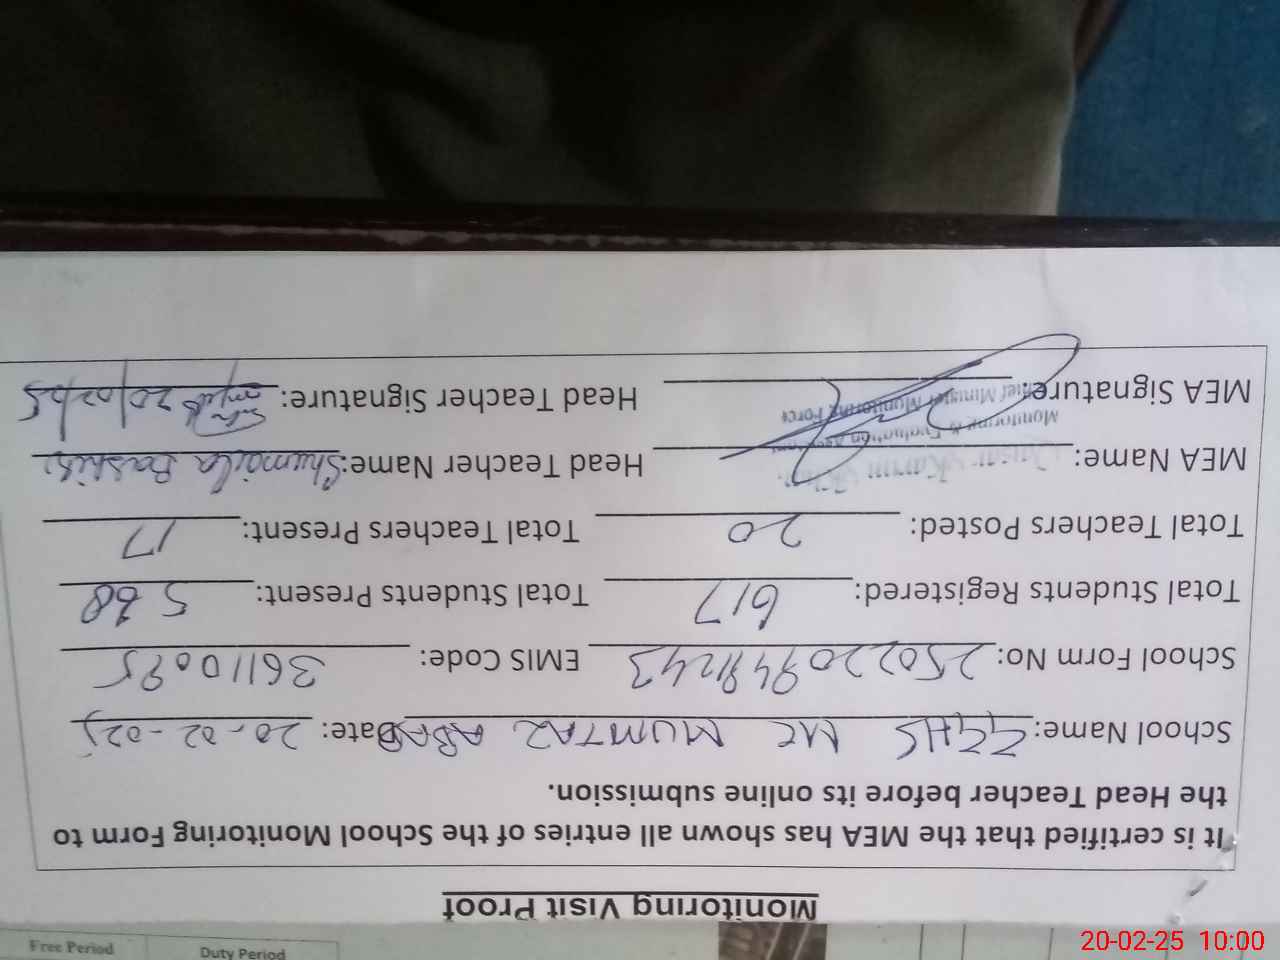 Free Period Duty Period
Monitoring Visit Proof
It is certified that the MEA has shown all entries of the School Monitoring Form to
the Head Teacher before its online submission.
School Name: GGHS MC MUMTAZ ABAD Date: 20-02-025
School Form No: 2502209481243 EMIS Code: 36110095
Total Students Registered: 617 Total Students Present: 568
Total Teachers Posted: 20 Total Teachers Present: 17
MEA Name: Head Teacher Name: Shumaila Bashir
Monitoring & Evaluation Assistant
Chief Minister Monitoring Force
MEA Signature: Head Teacher Signature: 20/02/25
20-02-25 10:00